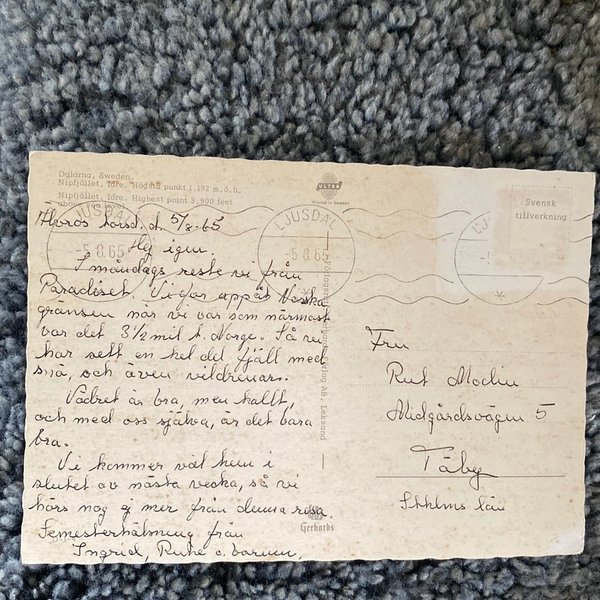 Dalarna, Sweden.
Nipfjället, Idre. Högsta punkt 1.192 m.ö.h.
Nipfjället, Idre. Highest point 3,900 feet
above sea level
ULTRA
Printed in Sweden
Svensk
tillverkning
LJUSDAL
-5.8.65
LJUSDAL
-5.8.65
LJ
Älvros torsd. d. 5/8-65
Hej igen.
I måndags reste vi från
Paradiset. Vi for uppåt Norska
gränsen när vi var som närmast
var det 3½ mil t. Norge. Så nu
har sett en hel del fjäll med
snö, och även vildrenar.
Vädret är bra, men kallt,
och med oss själva, är det bara
bra.
Vi kommer väl hem i
slutet av nästa vecka, så vi
hörs nog ej mer från denna resa.
Semesterhälsning från
Ingrid, Rune o. barnen.
AB, Leksand
Gerhards
Fru
Rut Modin
Midgårdsvägen 5
Täby
Sthlms län